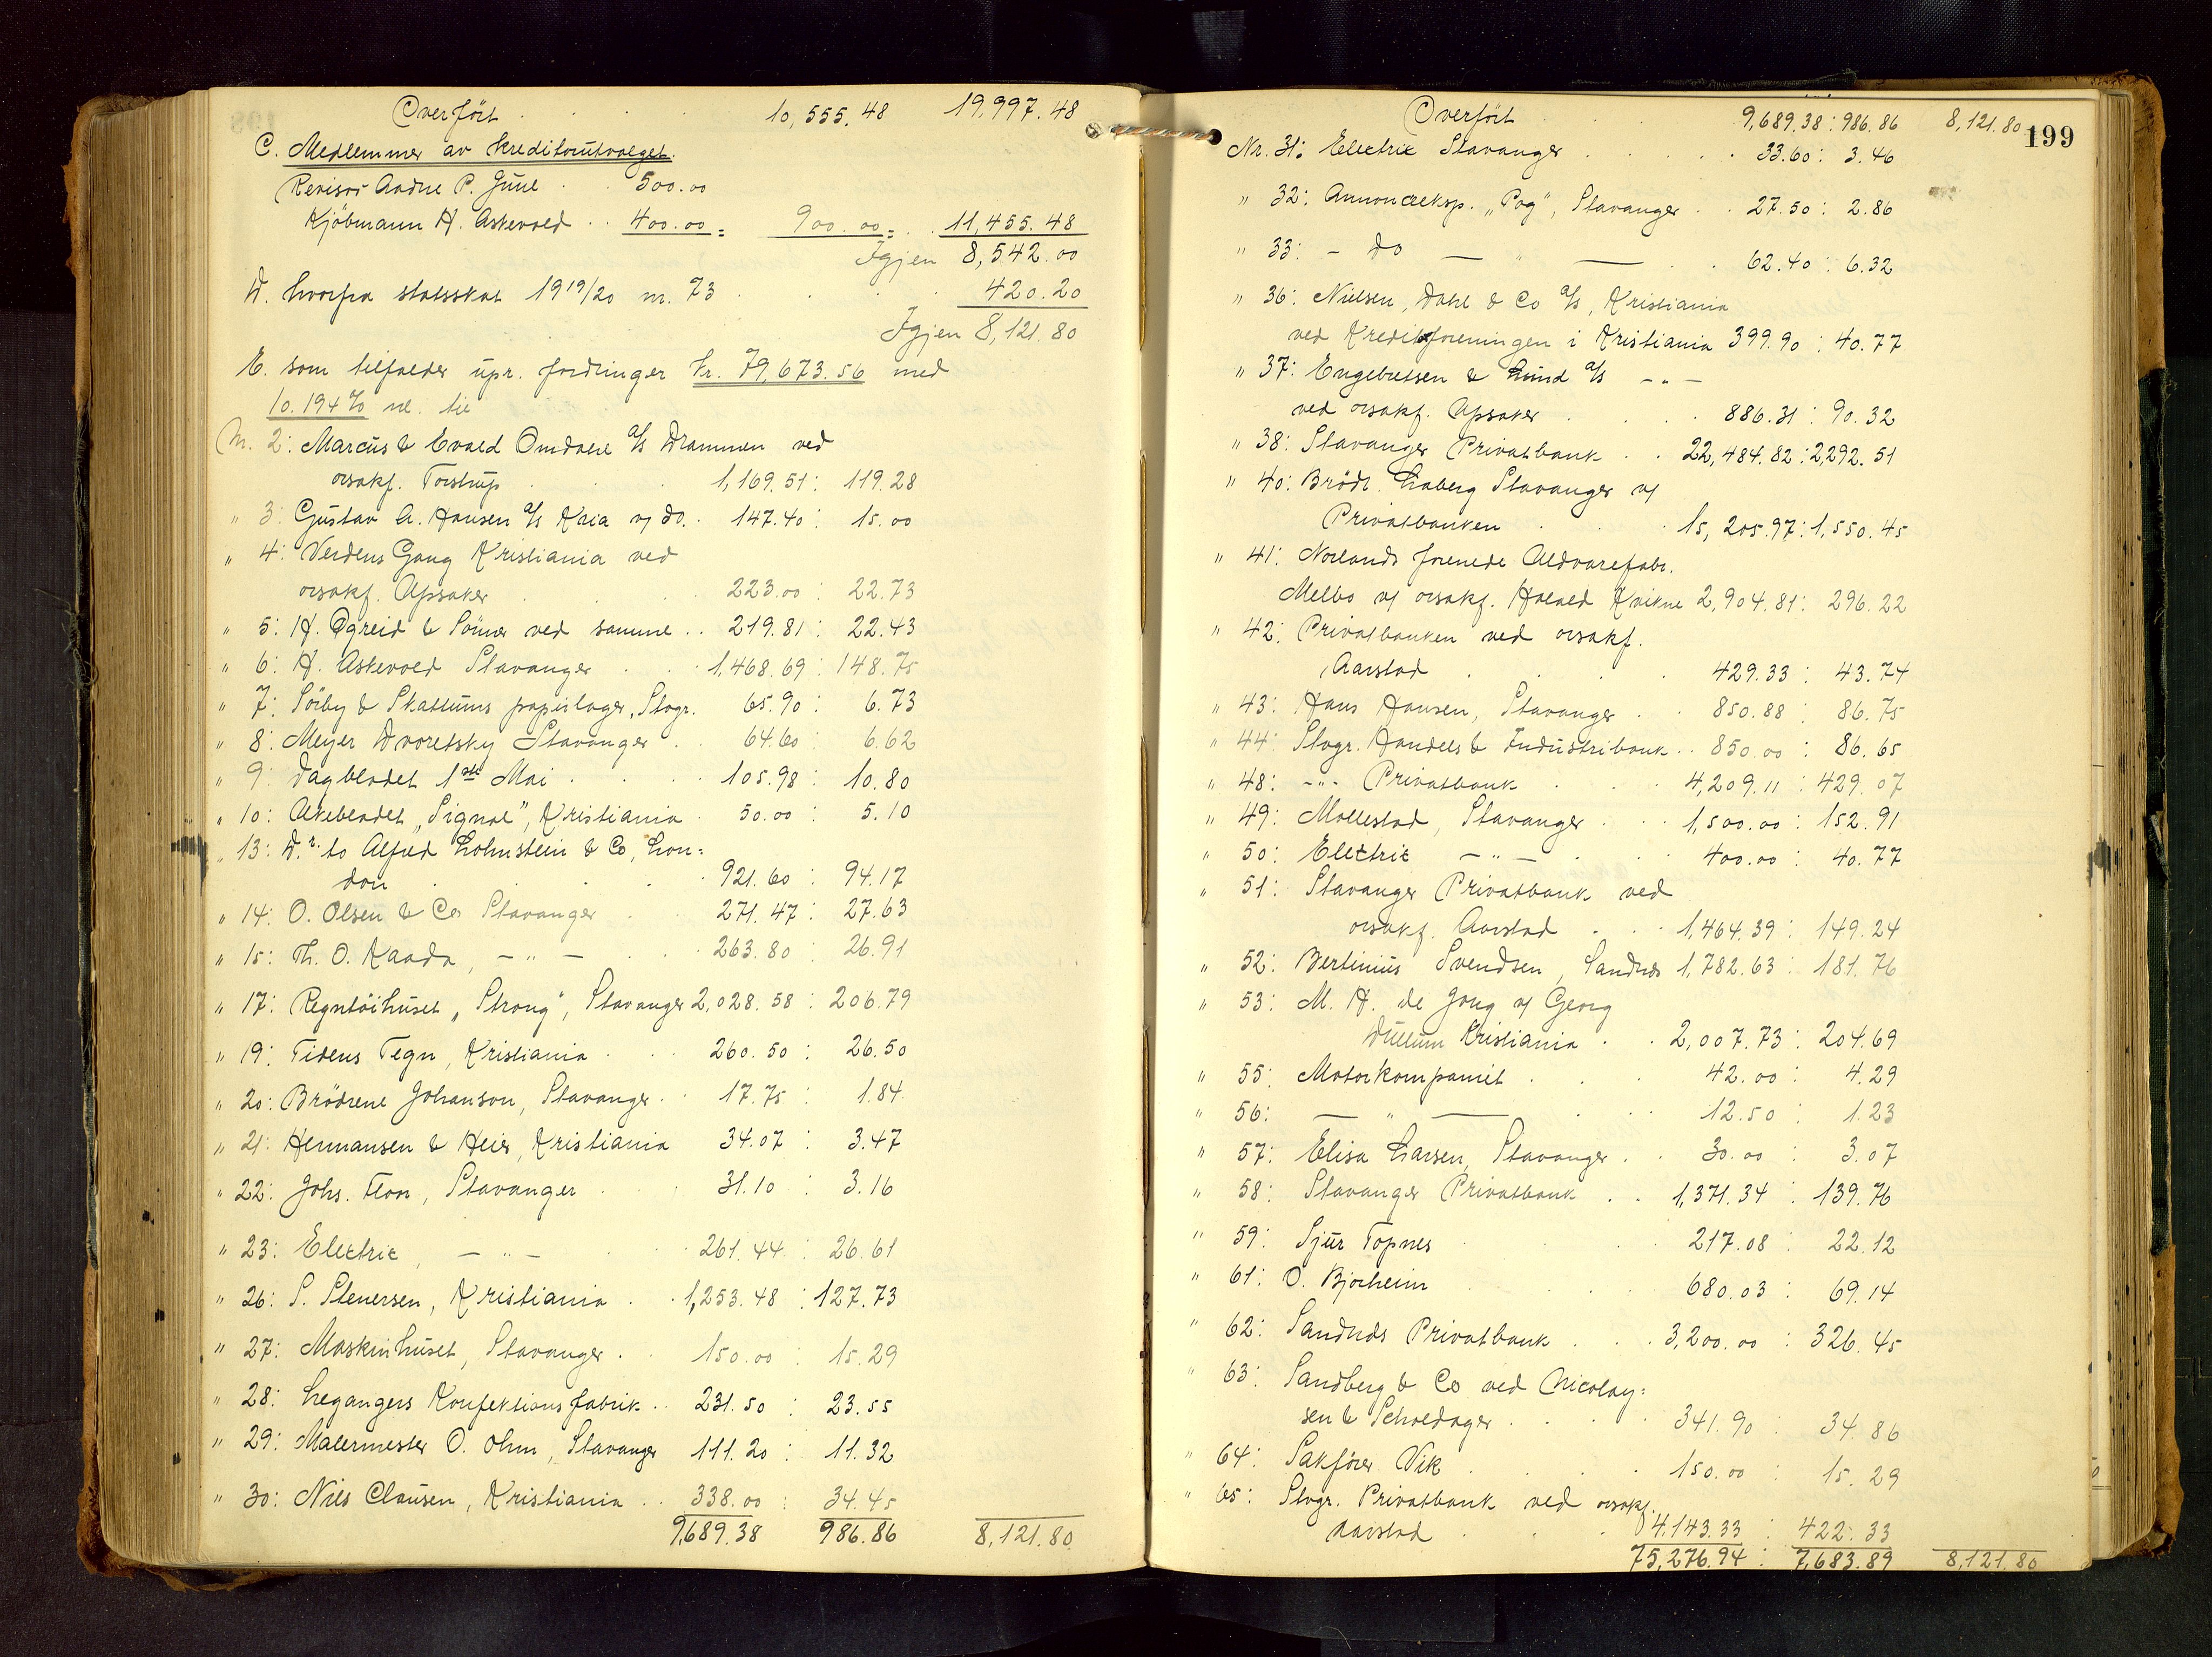 Overført . . . 10,555.48 19.997.48
C. Medlemmer av kreditorutvalget.
Revisor Andre P. Juul . . 500.00
Kjøbmann H. Askevold . . 400.00 = 900.00 = . 11,455.48
Igjen 8,542.00
D. hvorfra statsskat 1919/20 nr. 73 . . . . 420.20
Igjen 8,121.80
E. som tilfalder upr. fordringer kr. 79,673.56 med
10.194% nl. til
Nr. 2: Marcus & Evald Omdahl A/S Drammen ved
orsakf. Torstrup . . . 1,169.51 : 119.28
" 3: Gustav A. Hansen A/S Kria v/ do. . 147.40 : 15.00
" 4: Verdens Gang Kristiania ved
orsakf. Opsaker . . . 223.00 : 22.73
" 5: H. Øgreid & Sömer ved samme . . 219.81 : 22.43
" 6: H. Askevold Stavanger . . 1,468.69 : 148.75
" 7: Sörby & Skattums papirlager, Stvgr. 65.90 : 6.73
" 8: Meyer Dvoretsky Stavanger . 64.60 : 6.62
" 9: Dagbladet 1ste Mai . . . 105.98 : 10.80
" 10: Ukebladet "Signal", Kristiania . 50.00 : 5.10
" 13: D.r. to Alfred Lohnstein & Co, Lon=
don . . . . 921.60 : 94.17
" 14: O. Olsen & Co Stavanger . 271.47 : 27.63
" 15: Th. O. Kaada, – " – . . 263.80 : 26.91
" 17: Regntöihuset "Strong", Stavanger 2,028.58 : 206.79
" 19: Tidens Tegn, Kristiania . . . 260.50 : 26.50
" 20: Brödrene Johanson, Stavanger . . 17.75 : 1.84
" 21: Hermansen & Heier, Kristiania 34.07 : 3.47
" 22: Johs. Floor, Stavanger . . 31.10 : 3.16
" 23: Electric, – " – . . 261.44 : 26.61
" 26: S. Stenersen, Kristiania . . 1,253.48 : 127.73
" 27: Maskinhuset, Stavanger . . 150.00 : 15.29
" 28: Legangers Konfektionsfabrik . . 231.50 : 23.55
" 29: Malermester O. Ohm, Stavanger 111.20 : 11.32
" 30: Nils Clausen, Kristiania . . 338.00 : 34.45
9,689.38 986.86 8,121.80
199
Overført . . . 9,689.38 : 986.86 8,121.80
Nr. 31: Electric Stavanger . . . . 33.60 : 3.46
" 32: Annonceeksp. "Pog", Stavanger . . 27.50 : 2.86
" 33: – do — " — . . 62.40 : 6.32
" 36: Nielsen, Dahl & Co A/S, Kristiania
ved Kreditforeningen i Kristiania 399.90 : 40.77
" 37: Engebretsen & Lund A/S – " –
ved orsakf. Opsaker . . . 886.31 : 90.32
" 38: Stavanger Privatbank . . 22,484.82 : 2,292.51
" 40: Brödr. Haberg Stavanger v/
Privatbanken . . . 15,205.97 : 1,550.45
" 41: Norlands forenede Uldvarefabr.
Melbo v/ orsakf. Harald Kvikne 2,904.81 : 296.22
" 42: Privatbanken ved orsakf.
Aarstad . . . . 429.33 : 43.74
" 43: Hans Hansen, Stavanger . . 850.88 : 86.75
" 44: Stvgr. Handels & Industribank . . 850.00 : 86.65
" 48: – " – Privatbank . . . 4,209.11 : 429.07
" 49: Mollestad, Stavanger . . . 1,500.00 : 152.91
" 50: Electric – " – . . . 400.00 : 40.77
" 51: Stavanger Privatbank ved
orsakf. Aarstad . . . 1,464.39 : 149.24
" 52: Bertinius Svendsen, Sandnes 1,782.63 : 181.76
" 53: M. H. de Jong v/ Georg
Dullum Kristiania . . 2,007.73 : 204.69
" 55: Motorkompaniet . . . 42.00 : 4.29
" 56: — " — . . . 12.50 : 1.23
" 57: Elisa Larsen, Stavanger . . 30.00 : 3.07
" 58: Stavanger Privatbank . . 1,371.34 : 139.76
" 59: Sjur Topnes . . 217.08 : 22.12
" 61: O. Bjorheim . . . 680.03 : 69.14
" 62: Sandnes Privatbank . . . 3,200.00 : 326.45
" 63: Sandberg & Co ved Nicolay=
sen & Scholdager . . . . 341.90 : 34.86
" 64: Sakförer Vik . . . . 150.00 : 15.29
" 65: Stvgr. Privatbank ved orsakf.
Aarstad . . . 4.143.33 : 422.33
75,276.94 : 7,683.89 8,121.80